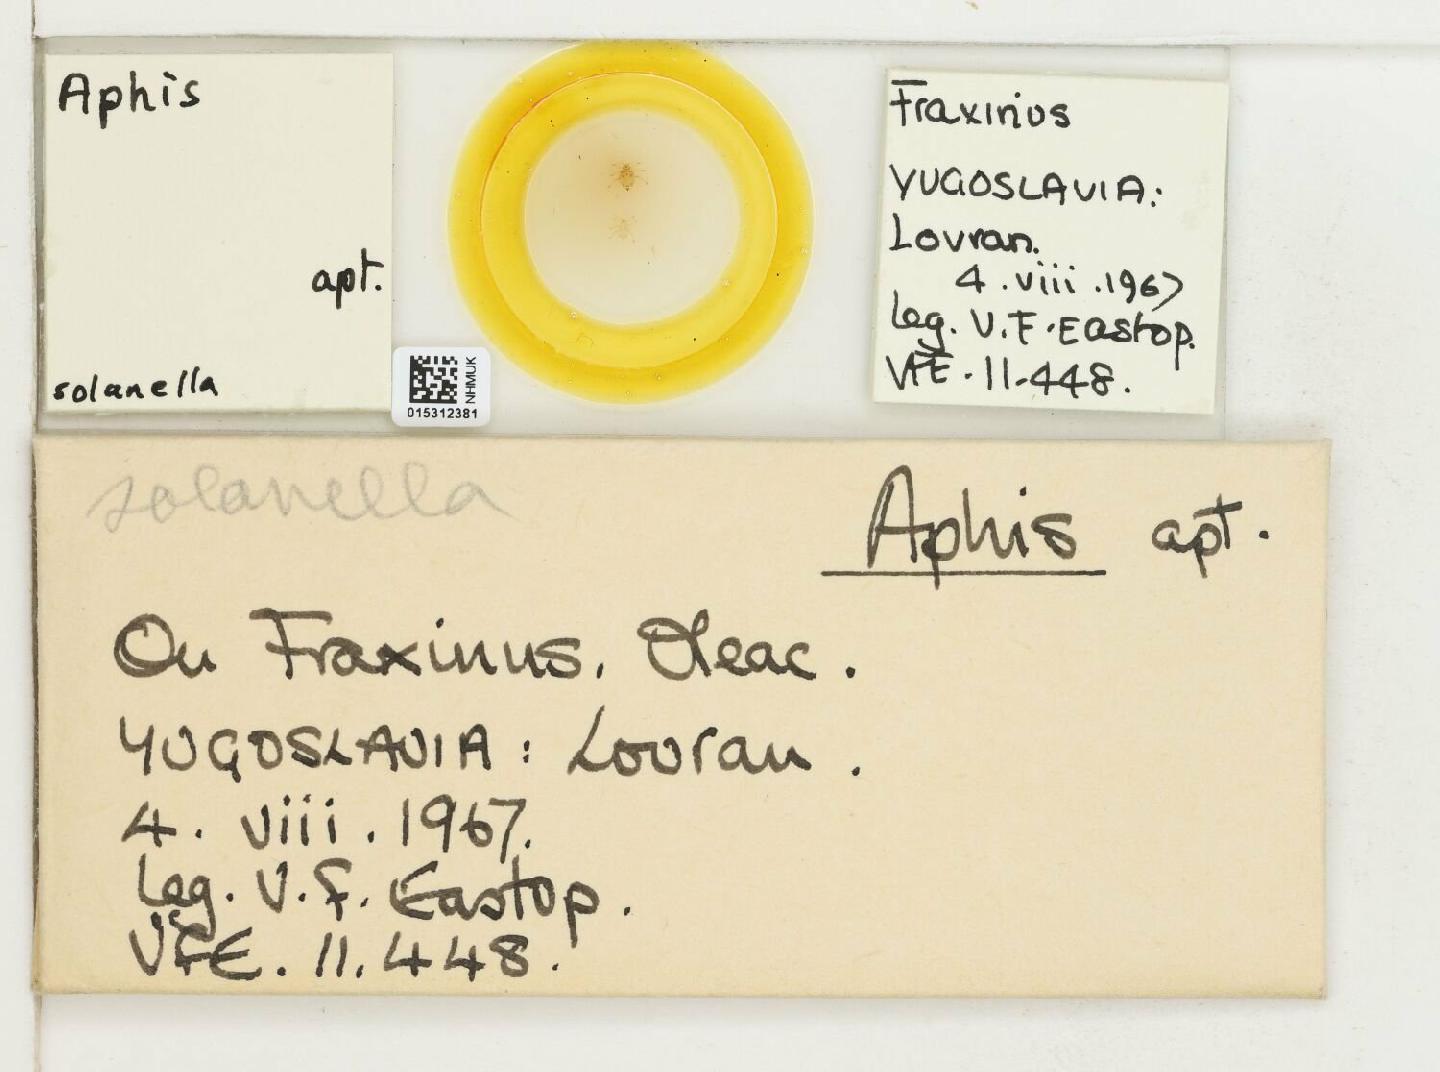 Aphis
apt.
solanella
NHMUK
015312381
Fraxinus
YUGOSLAVIA:
Lovran.
4.viii.1967
leg. V.F.Eastop.
VFE.11-448.
solanella
Aphis apt.
On Fraxinus, Oleac.
YUGOSLAVIA: Lovran.
4. viii. 1967.
leg. V.F. Eastop.
VFE. 11.448.